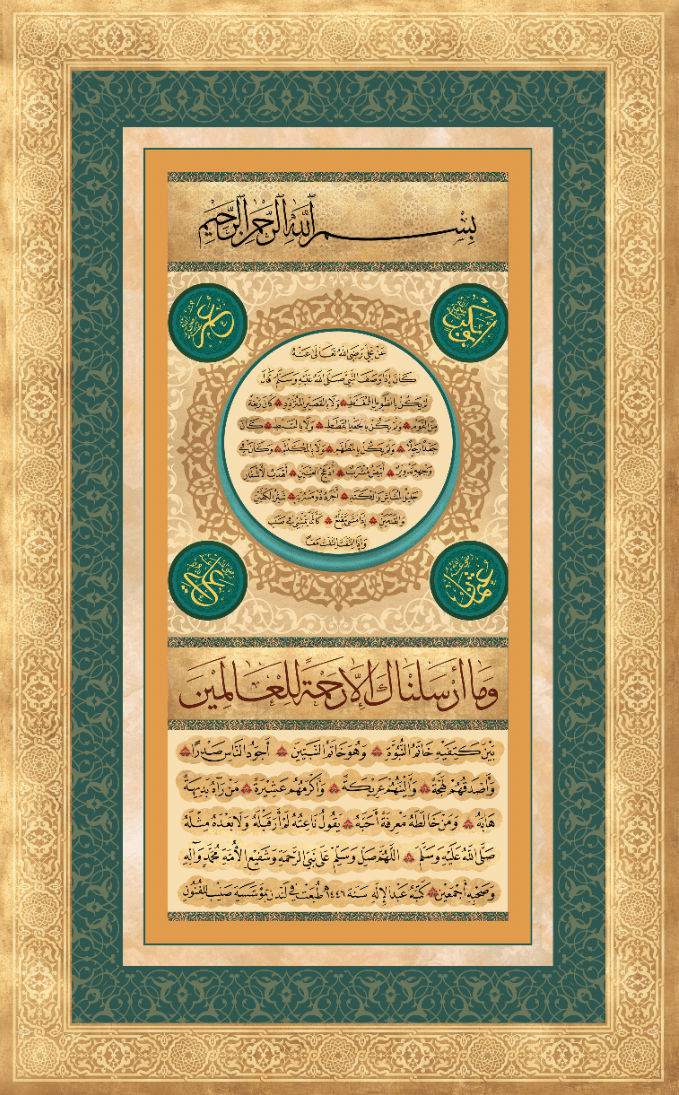 بِسْمِ ٱللَّهِ ٱلرَّحْمَٰنِ ٱلرَّحِيمِ
أبو بكر
عمر
عَنْ عَلِيٍّ رَضِيَ اللهُ تَعَالَى عَنْهُ
كَانَ إِذَا وَصَفَ النَّبِيَّ صَلَّى اللهُ عَلَيْهِ وَسَلَّمَ قَالَ
لَمْ يَكُنْ بِالطَّوِيلِ الْمُمَّغِطِ وَلَا بِالْقَصِيرِ الْمُتَرَدِّدِ كَانَ رَبْعَةً
مِنَ الْقَوْمِ وَلَمْ يَكُنْ بِالْجَعْدِ الْقَطَطِ وَلَا بِالسَّبِطِ كَانَ
جَعْدًا رَجِلًا وَلَمْ يَكُنْ بِالْمُطَهَّمِ وَلَا بِالْمُكَلْثَمِ وَكَانَ فِي
وَجْهِهِ تَدْوِيرٌ أَبْيَضُ مُشْرَبٌ أَدْعَجُ الْعَيْنَيْنِ أَهْدَبُ الْأَشْفَارِ
جَلِيلُ الْمُشَاشِ وَالْكَتَدِ أَجْرَدُ ذُو مَسْرُبَةٍ شَثْنُ الْكَفَّيْنِ
وَالْقَدَمَيْنِ إِذَا مَشَى تَقَلَّعَ كَأَنَّمَا يَمْشِي فِي صَبَبٍ
وَإِذَا الْتَفَتَ الْتَفَتَ مَعًا
عثمان
علي
وَمَا أَرْسَلْنَاكَ إِلَّا رَحْمَةً لِلْعَالَمِينَ
بَيْنَ كَتِفَيْهِ خَاتَمُ النُّبُوَّةِ وَهُوَ خَاتَمُ النَّبِيِّينَ أَجْوَدُ النَّاسِ صَدْرًا
وَأَصْدَقُهُمْ لَهْجَةً وَأَلْيَنُهُمْ عَرِيكَةً وَأَكْرَمُهُمْ عَشِيرَةً مَنْ رَآهُ بَدِيهَةً
هَابَهُ وَمَنْ خَالَطَهُ مَعْرِفَةً أَحَبَّهُ يَقُولُ نَاعِتُهُ لَمْ أَرَ قَبْلَهُ وَلَا بَعْدَهُ مِثْلَهُ
صَلَّى اللهُ عَلَيْهِ وَسَلَّمَ اللَّهُمَّ صَلِّ وَسَلِّمْ عَلَى نَبِيِّ الرَّحْمَةِ وَشَفِيعِ الْأُمَّةِ مُحَمَّدٍ وَآلِهِ
وَصَحْبِهِ أَجْمَعِينَ كَتَبَهُ عَبْدُ الْإِلٰهِ سَنَةَ ١٤٤٦هـ طُبِعَتْ فِي لَنْدَن مُؤَسَّسَة لِلْفُنُونِ